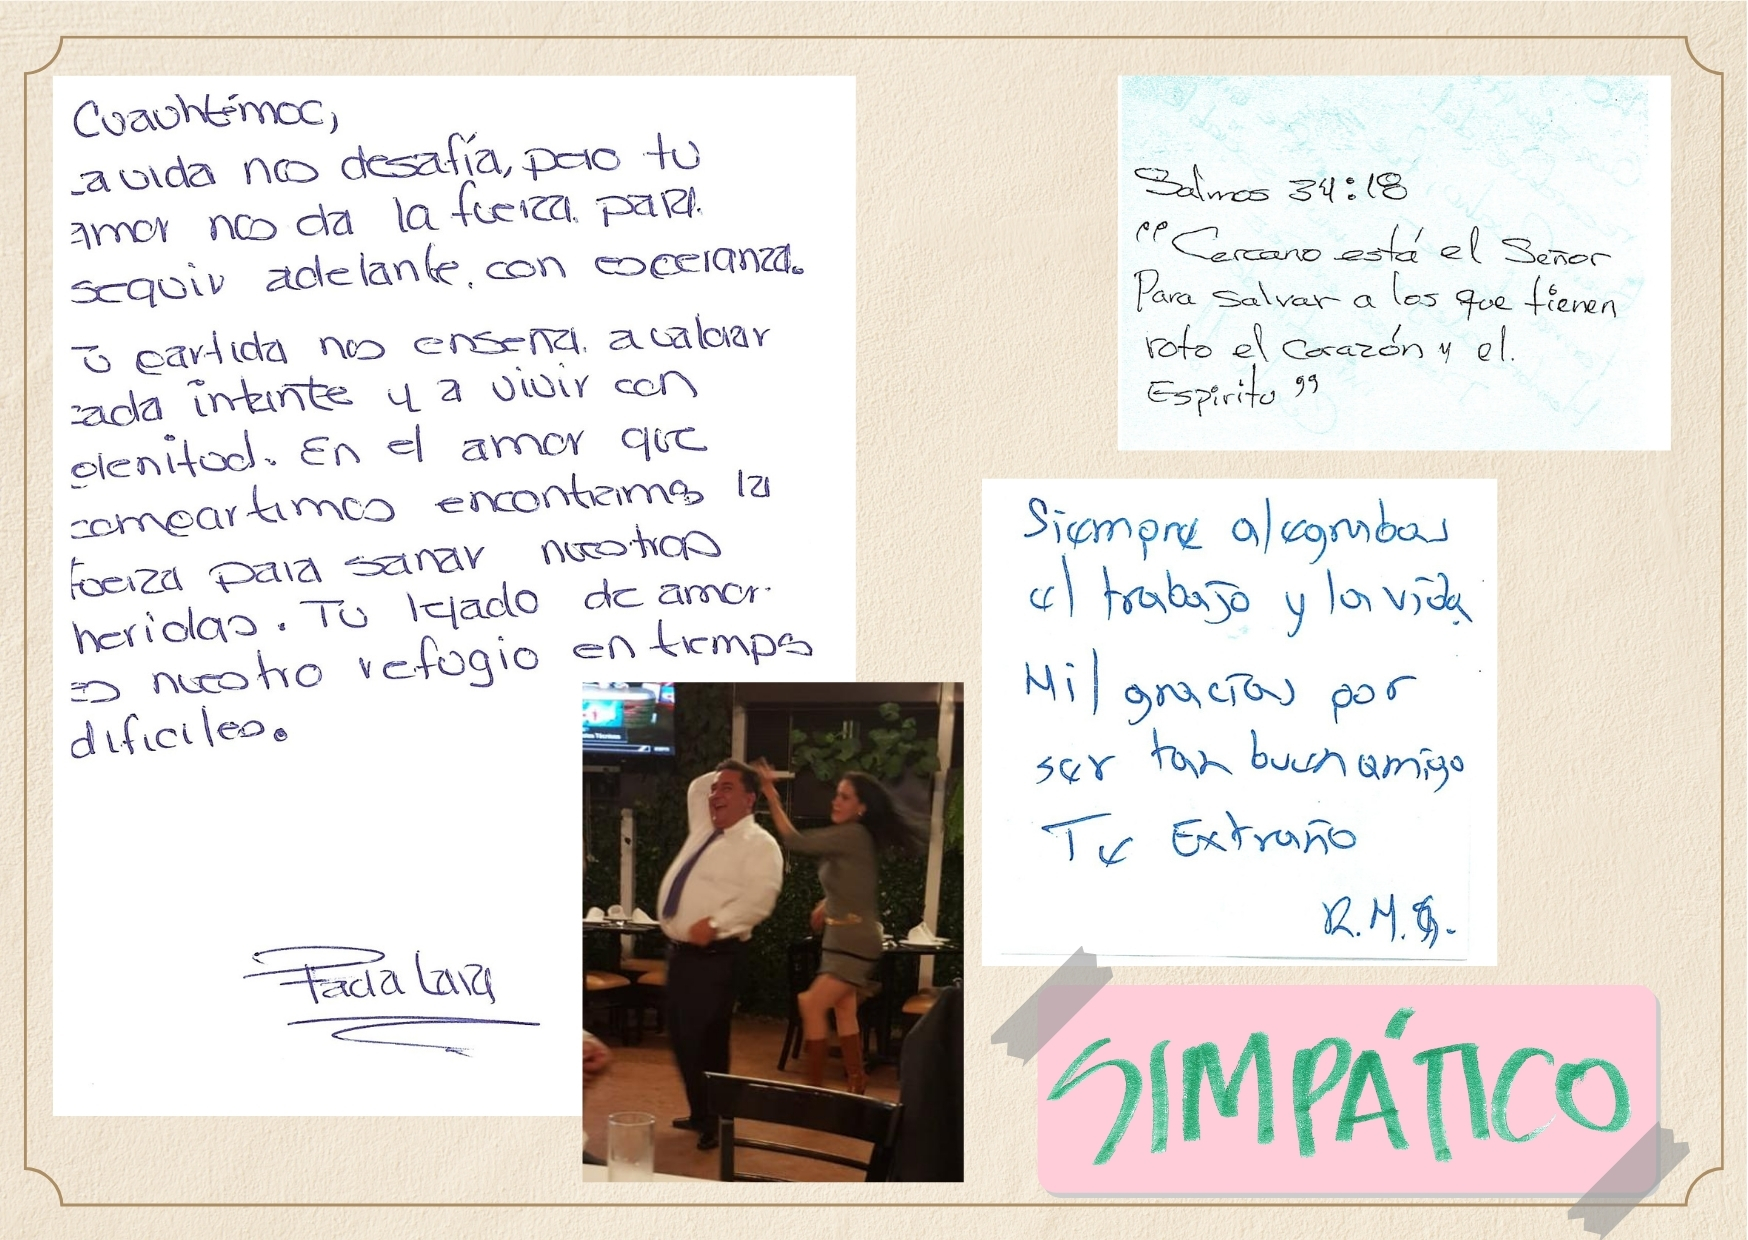 Cuauhtémoc,
La vida nos desafía, pero tu
amor nos da la fuerza para
seguir adelante, con esperanza.
Tu partida nos enseña a valorar
cada instante y a vivir con
plenitud. En el amor que
compartimos encontramos la
fuerza para sanar nuestras
heridas. Tu legado de amor
es nuestro refugio en tiempos
dificiles.
Lara
Salmos 34:18
"Cercano está el Señor
Para salvar a los que tienen
roto el corazón y el
Espiritu"
Siempre alegrabas
el trabajo y la vida
Mil gracias por
ser tan buen amigo
Te Extraño
R.M.G.
SIMPÁTICO